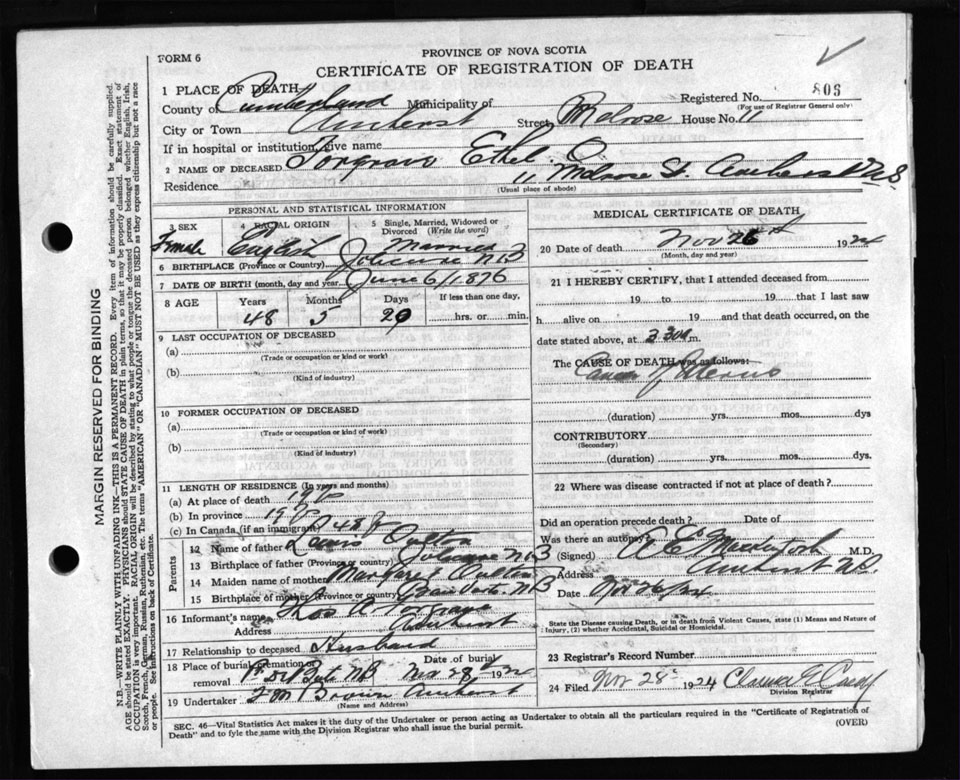 PROVINCE OF NOVA SCOTIA
FORM 6
CERTIFICATE OF REGISTRATION OF DEATH
1 PLACE OF DEATH
Registered No. 806
(For use of Registrar General only)
County of Cumberland Municipality of
City or Town Amherst Street Melrose House No. 11
If in hospital or institution, give name
2 NAME OF DECEASED Forgrave Ethel O.
Residence 11 Melrose St. Amherst N.S
(Usual place of abode)
PERSONAL AND STATISTICAL INFORMATION
3 SEX 4 RACIAL ORIGIN 5 Single, Married, Widowed or Divorced (Write the word)
Female English Married
6 BIRTHPLACE (Province or Country) Jolicure N.B
7 DATE OF BIRTH (month, day and year) June 6/1876
8 AGE Years Months Days If less than one day,
48 5 20 hrs. or min.
9 LAST OCCUPATION OF DECEASED
(a)
(Trade or occupation or kind or work)
(b)
(Kind of industry)
10 FORMER OCCUPATION OF DECEASED
(a)
(Trade or occupation or kind of work)
(b)
(Kind of industry)
11 LENGTH OF RESIDENCE (In years and months)
(a) At place of death 19
(b) In province 19
(c) In Canada (if an immigrant) 48
Parents
12 Name of father Lewis Oulton
13 Birthplace of father (Province or country) Jolicure N.B
14 Maiden name of mother Margaret Oulton
15 Birthplace of mother (Province or country) N.B
16 Informant's name Thos Forgrave
Address Amherst
17 Relationship to deceased Husband
18 Place of burial, cremation or removal N.B Date of burial Nov 28 1924
19 Undertaker Brown Amherst
(Name and Address)
MEDICAL CERTIFICATE OF DEATH
20 Date of death Nov 26th 1924
(Month, day and year)
21 I HEREBY CERTIFY, that I attended deceased from
19 to 19 that I last saw
h alive on 19 and that death occurred, on
date stated above, at m.
The CAUSE OF DEATH was as follows:
Cancer of Uterus
(duration) yrs. mos. dys
CONTRIBUTORY
(Secondary)
(duration) yrs. mos. dys.
22 Where was disease contracted if not at place of death?
Did an operation precede death? Date of
Was there an autopsy?
(Signed) McIntosh M.D.
Address Amherst N.S.
Date Nov 26/24
State the Disease causing Death, or in death from Violent Causes, state (1) Means and Nature of Injury, (2) whether Accidental, Suicidal or Homicidal.
23 Registrar's Record Number
24 Filed Nov 28 1924 Clarence E
Division Registrar
SEC. 46—Vital Statistics Act makes it the duty of the Undertaker or person acting as Undertaker to obtain all the particulars required in the "Certificate of Registration of
Death" and to fyle the same with the Division Registrar who shall issue the burial permit.
(OVER)
MARGIN RESERVED FOR BINDING
N.B.—WRITE PLAINLY WITH UNFADING INK—THIS IS A PERMANENT RECORD. Every item of information should be carefully supplied.
AGE should be stated EXACTLY. PHYSICIANS should STATE CAUSE OF DEATH in plain terms, so that it may be properly classified. Exact statement of
OCCUPATION is very important. RACIAL ORIGIN will be described by stating to what people or tongue the deceased person belonged whether English, Irish,
Scotch, French, German, Russian, Ruthenian, etc. The terms "AMERICAN" OR "CANADIAN" MUST NOT BE USED as they express citizenship but not a race
or people. See instructions on back of Certificate.